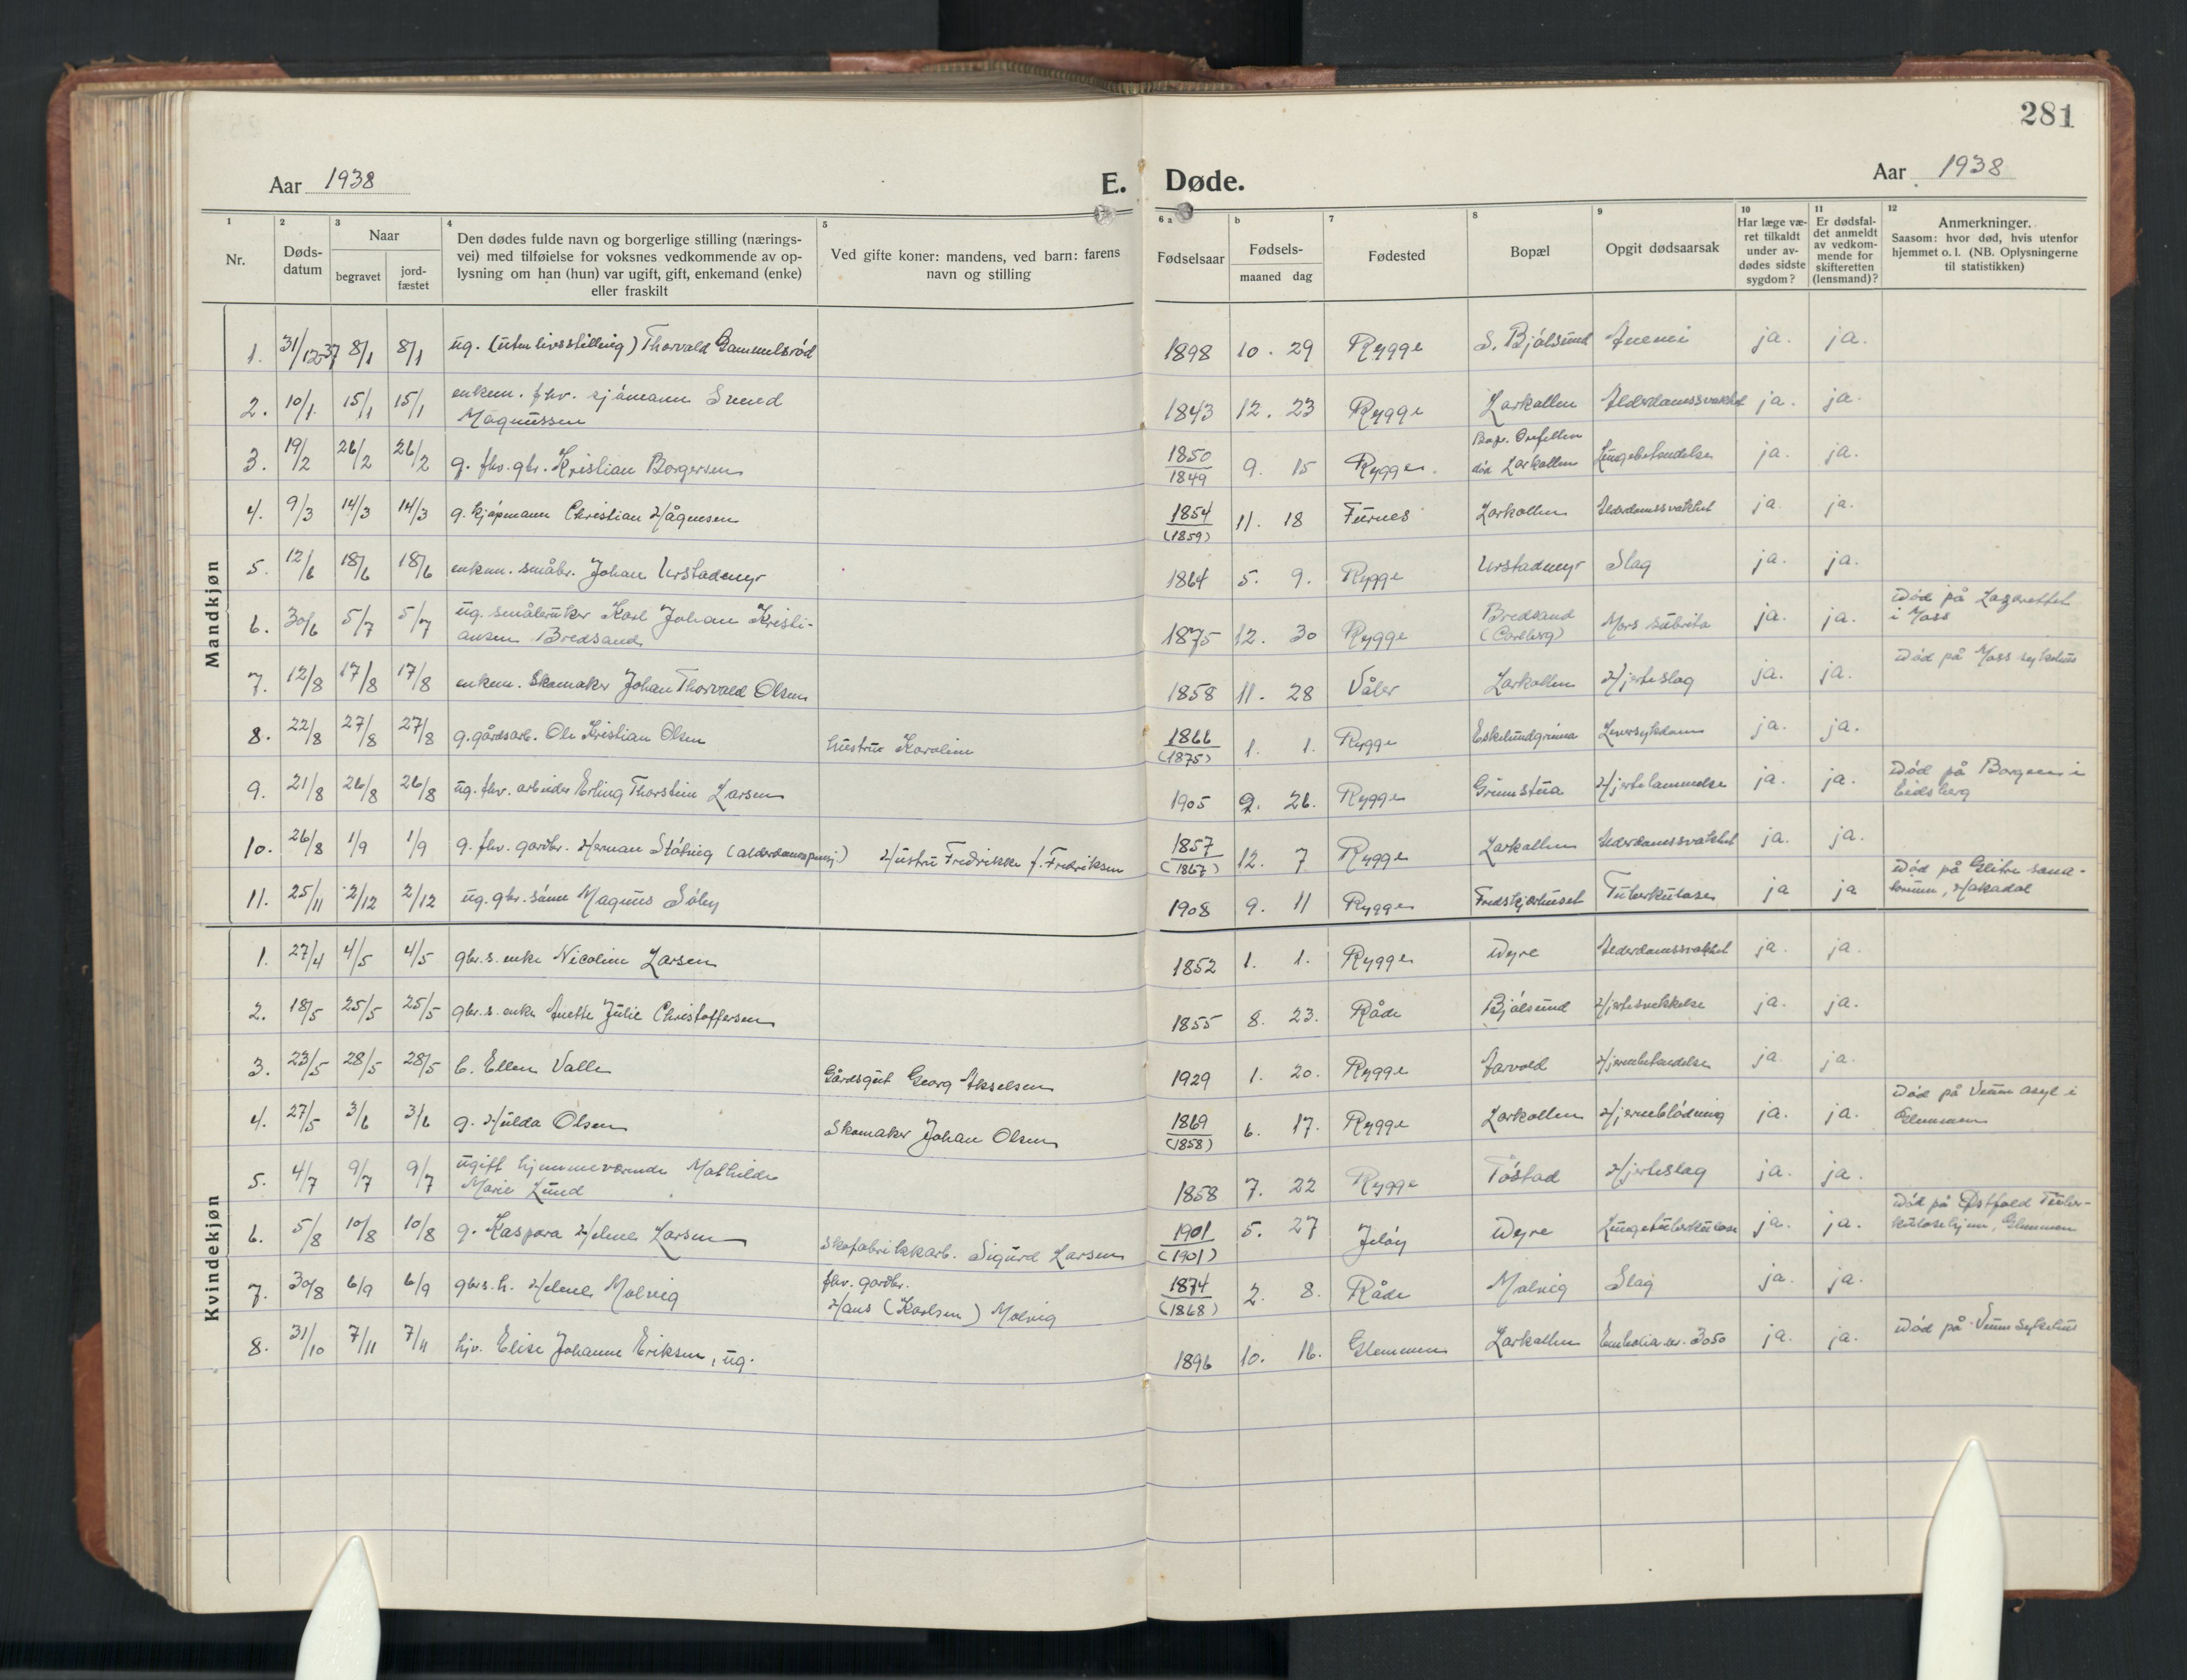 281
Aar 1938
E. Døde.
Aar 1938
1 Nr.
2 Døds-datum
3 Naar
begravet
jord-fæstet
4 Den dødes fulde navn og borgerlige stilling (nærings-
vei) med tilføielse for voksnes vedkommende av op-
lysning om han (hun) var ugift, gift, enkemand (enke)
eller fraskilt
5 Ved gifte koner: mandens, ved barn: farens
navn og stilling
6 a Fødselsaar
b Fødsels-
maaned dag
7 Fødested
8 Bopæl
9 Opgit dødsaarsak
10 Har læge væ-
ret tilkaldt
under av-
dødes sidste
sygdom?
11 Er dødsfal-
det anmeldt
av vedkom-
mende for
skifteretten
(lensmand)?
12 Anmerkninger.
Saasom: hvor død, hvis utenfor
hjemmet o. l. (NB. Oplysningerne
til statistikken)
Mandkjøn
1. 31/12-37 8/1 8/1 ug. (uten livsstilling) Thorvald Gammelsrød 1898 10. 29 Rygge S. Bjølsund Anemi ja. ja.
2. 10/1 15/1 15/1 enkem. fhv. sjømann Svend
Magnussen 1843 12. 23 Rygge Larkollen Alderdomssvakhet ja. ja.
3. 19/2 26/2 26/2 g. fhv. gbr. Kristian Borgersen 1850 1849 9. 15 Rygge.
død Larkollen Lungebetendelse ja. ja.
4. 9/3 14/3 14/3 g. kjøpmann Christian Hågensen 1854 (1859) 11. 18 Furnes Larkollen Alderdomssvakhet ja. ja.
5. 12/6 18/6 18/6 enkem. småbr. Johan Urstadmyr 1864 5. 9. Rygge Urstadmyr Slag ja. ja.
6. 30/6 5/7 5/7 ug. småbruker Karl Johan Kristi-
ansen Bredsand 1875 12. 30 Rygge Bredsand
(Carlberg) Mors subita ja. ja. Død på Lazarettet
i Moss
7. 12/8 17/8 17/8 enkem. skomaker Johan Thorvald Olsen 1858 11. 28 Våler Larkollen Hjerteslag ja. ja. Død på Moss sykehus
8. 22/8 27/8 27/8 g. gårdsarb. Ole Kristian Olsen hustru Karoline 1866 (1875) 1. 1. Rygge Eskelundgrinna Leversykdom ja. ja.
9. 21/8 26/8 26/8 ug. fhv. arbeider Erling Thorstein Larsen 1905 9. 26. Rygge Grimstua Hjertelammelse ja. ja. Død på Borgen i
Eidsberg
10. 26/8 1/9 1/9 g. fhv. gardbr. Herman Støtvig (alderdomspensj.) Hustru Fredrikke f. Fredriksen 1857 (1867) 12. 7 Rygge Larkollen Alderdomssvakhet ja. ja.
11. 25/11 2/12 2/12 ug. gbr. sønn Magnus Søby 1908 9. 11 Rygge Tuberkulose ja ja Død på Glitre sana-
torium, Hakadal
Kvindekjøn
1. 27/4 4/5 4/5 gbr.s. enke Nicoline Larsen 1852 1. 1. Rygge Dyre Alderdomssvakhet ja. ja.
2. 18/5 25/5 25/5 gbr.s. enke Anette Julie Christoffersen 1855 8. 23. Råde Bjølsund Hjertesvekkelse ja. ja.
3. 23/5 28/5 28/5 b. Ellen Valle Gårdsgut Georg Akselsen 1929 1. 20. Rygge Årvold Hjernebetendelse ja ja.
4. 27/5 3/6 3/6 g. Hulda Olsen Skomaker Johan Olsen 1869 (1858) 6. 17. Rygge Larkollen Hjerneblødning ja. ja. Død på Veum asyl i
Glemmen
5. 4/7 9/7 9/7 ugift hjemmeværende Mathilde
Marie Lund 1858 7. 22 Rygge Tøstad Hjerteslag ja. ja.
6. 5/8 10/8 10/8 g. Kaspara Helene Larsen Skofabrikkarb. Sigurd Larsen 1901 (1901) 5. 27 Jeløy Dyre Lungetuberkulose ja. ja. Død på Østfold Tuber-
kulosehjem, Glemmen
7. 30/8 6/9 6/9 gbrs. h. Helene Molvig fhv. gardbr.
Hans (Karlsen) Molvig 1874 (1868) 2. 8. Råde Molvig Slag ja. ja.
8. 31/10 7/11 7/11 hjv. Elise Johanne Eriksen, ug. 1896 10. 16. Glemmen Larkollen Embolia nr. 3050 ja. ja. Død på Veum Sykehus